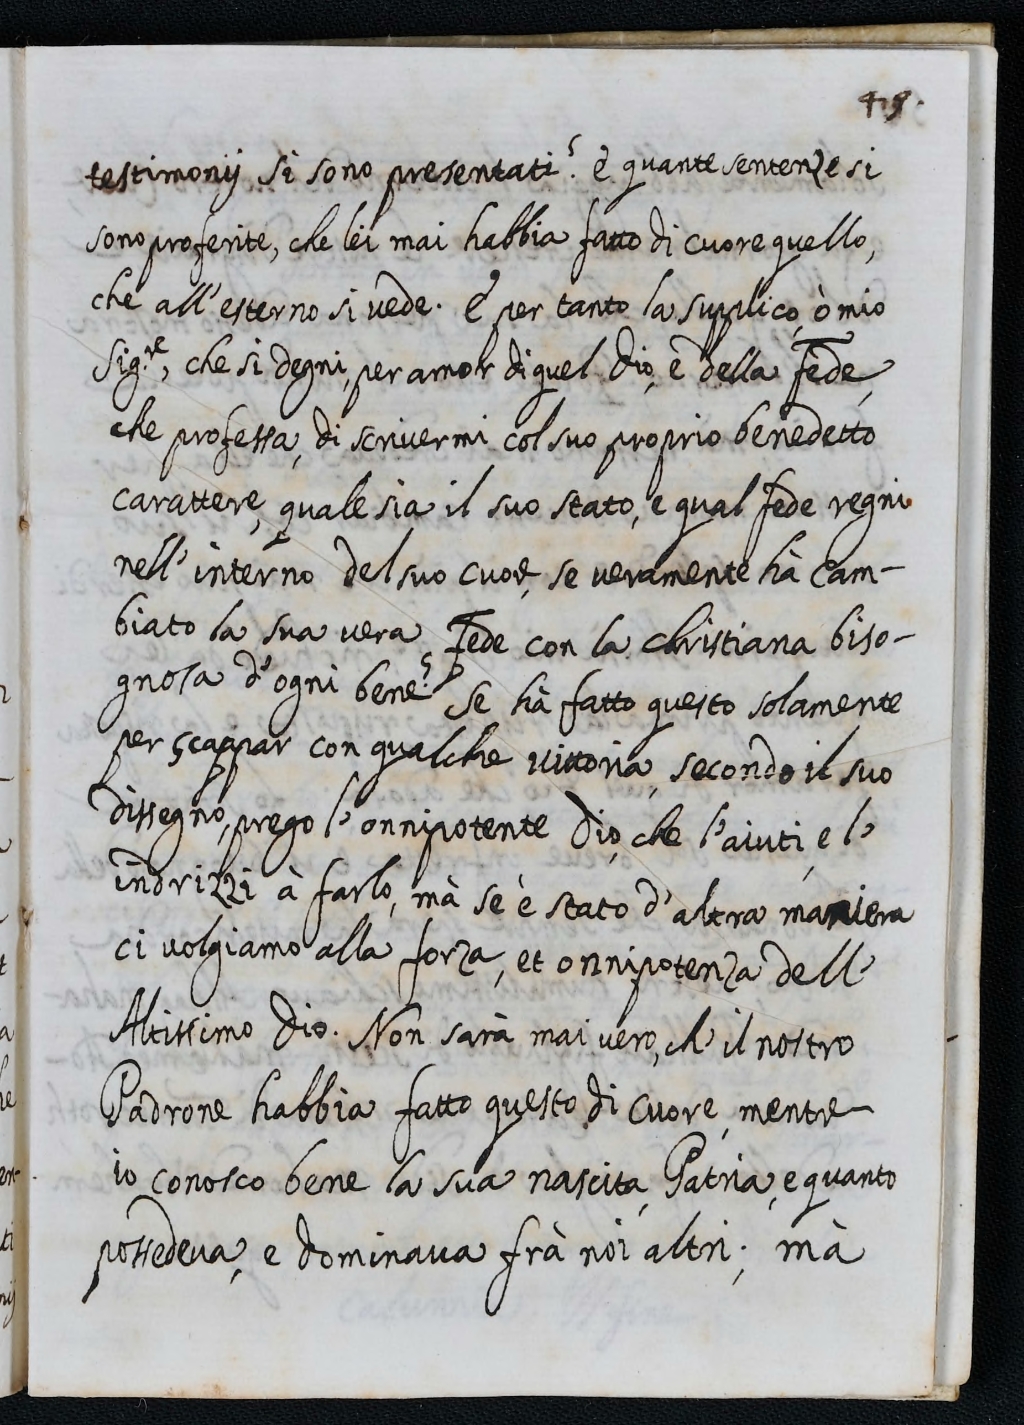 419.
testimonij si sono presentati? è quante sentenze si
sono proferite, che lei mai habbia fatto di cuore quello,
che all'esterno si vede. E per tanto la supplico, ò mio
Sig.re, che si degni, per amor di quel Dio, e della Fede,
che professa, di scrivermi col suo proprio benedetto
carattere, quale sia il suo stato, e qual fede regni
nell' interno del suo cuore, se veramente hà cam-
biato la sua vera Fede con la christiana biso-
gnosa d'ogni bene? Se hà fatto questo solamente
per scappar con qualche vittoria, secondo il suo
dissegno, prego l' onnipotente Dio, che l'aiuti, e l'
indrizzi à farlo, mà se è stato d'altra maniera
ci volgiamo alla forza, et onnipotenza dell'
Altissimo Dio. Non sarà mai vero, ch' il nostro
Padrone habbia fatto questo di cuore, mentre
io conosco bene la sua nascita, Patria, e quanto
possedeva, e dominava frà noi altri; mà